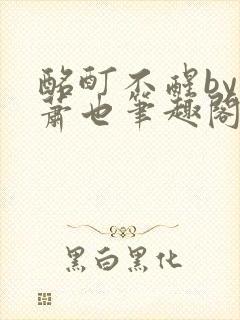 酩酊不醒by
萧也筆趣閣
黑白黑化